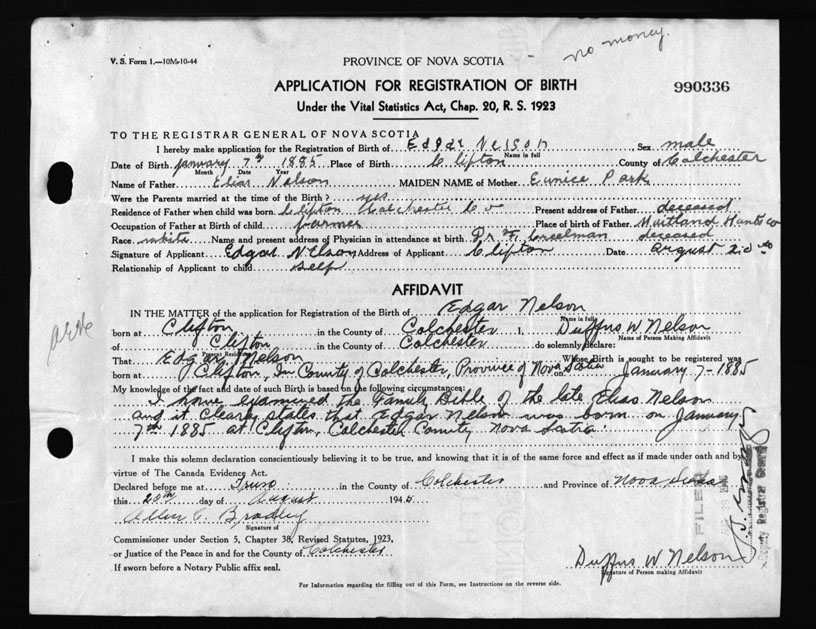 no money.
V. S. Form 1.—10M-10-44
PROVINCE OF NOVA SCOTIA
APPLICATION FOR REGISTRATION OF BIRTH
990336
Under the Vital Statistics Act, Chap. 20, R. S. 1923
TO THE REGISTRAR GENERAL OF NOVA SCOTIA
I hereby make application for the Registration of Birth of Edgar Nelson Sex male
Name in full
Date of Birth January 7th 1885 Place of Birth Clifton County of Colchester
Month Date Year
Name of Father Elias Nelson MAIDEN NAME of Mother Eunice Park
Were the Parents married at the time of the Birth? yes
Residence of Father when child was born Clifton Colchester Co Present address of Father deceased
Occupation of Father at Birth of Child farmer Place of birth of Father Maitland Hants co
Race white Name and present address of Physician in attendance at birth Dr Creelman deceased
Signature of Applicant Edgar Nelson Address of Applicant Clifton Date August 20th
Relationship of Applicant to child self
AFFIDAVIT
IN THE MATTER of the application for Registration of the Birth of Edgar Nelson
Name in full
born at Clifton in the County of Colchester I, Duffus W Nelson
Name of Person Making Affidavit
of Clifton in the County of Colchester do solemnly declare:
Present Residence
That Edgar Nelson Whose Birth is sought to be registered was
born at Clifton, In County of Colchester, Province of Nova Scotia on January 7-1885
My knowledge of the fact and date of such Birth is based on the following circumstances:
I have examined the Family Bible of the late Elias Nelson
and it clearly states that Edgar Nelson was born on January
7th 1885 at Clifton, Colchester County Nova Scotia.
I make this solemn declaration conscientiously believing it to be true, and knowing that it is of the same force and effect as if made under oath and by
virtue of The Canada Evidence Act.
Declared before me at Truro in the County of Colchester and Province of Nova Scotia
this 20th day of August 194
Allen C. Bradley
Signature of
Commissioner under Section 5, Chapter 38, Revised Statutes, 1923,
or Justice of the Peace in and for the County of Colchester
If sworn before a Notary Public affix seal.
Duffus W Nelson
Signature of Person making Affidavit
For Information regarding the filling out of this Form, see Instructions on the reverse side.
FILED
Deputy Registrar General